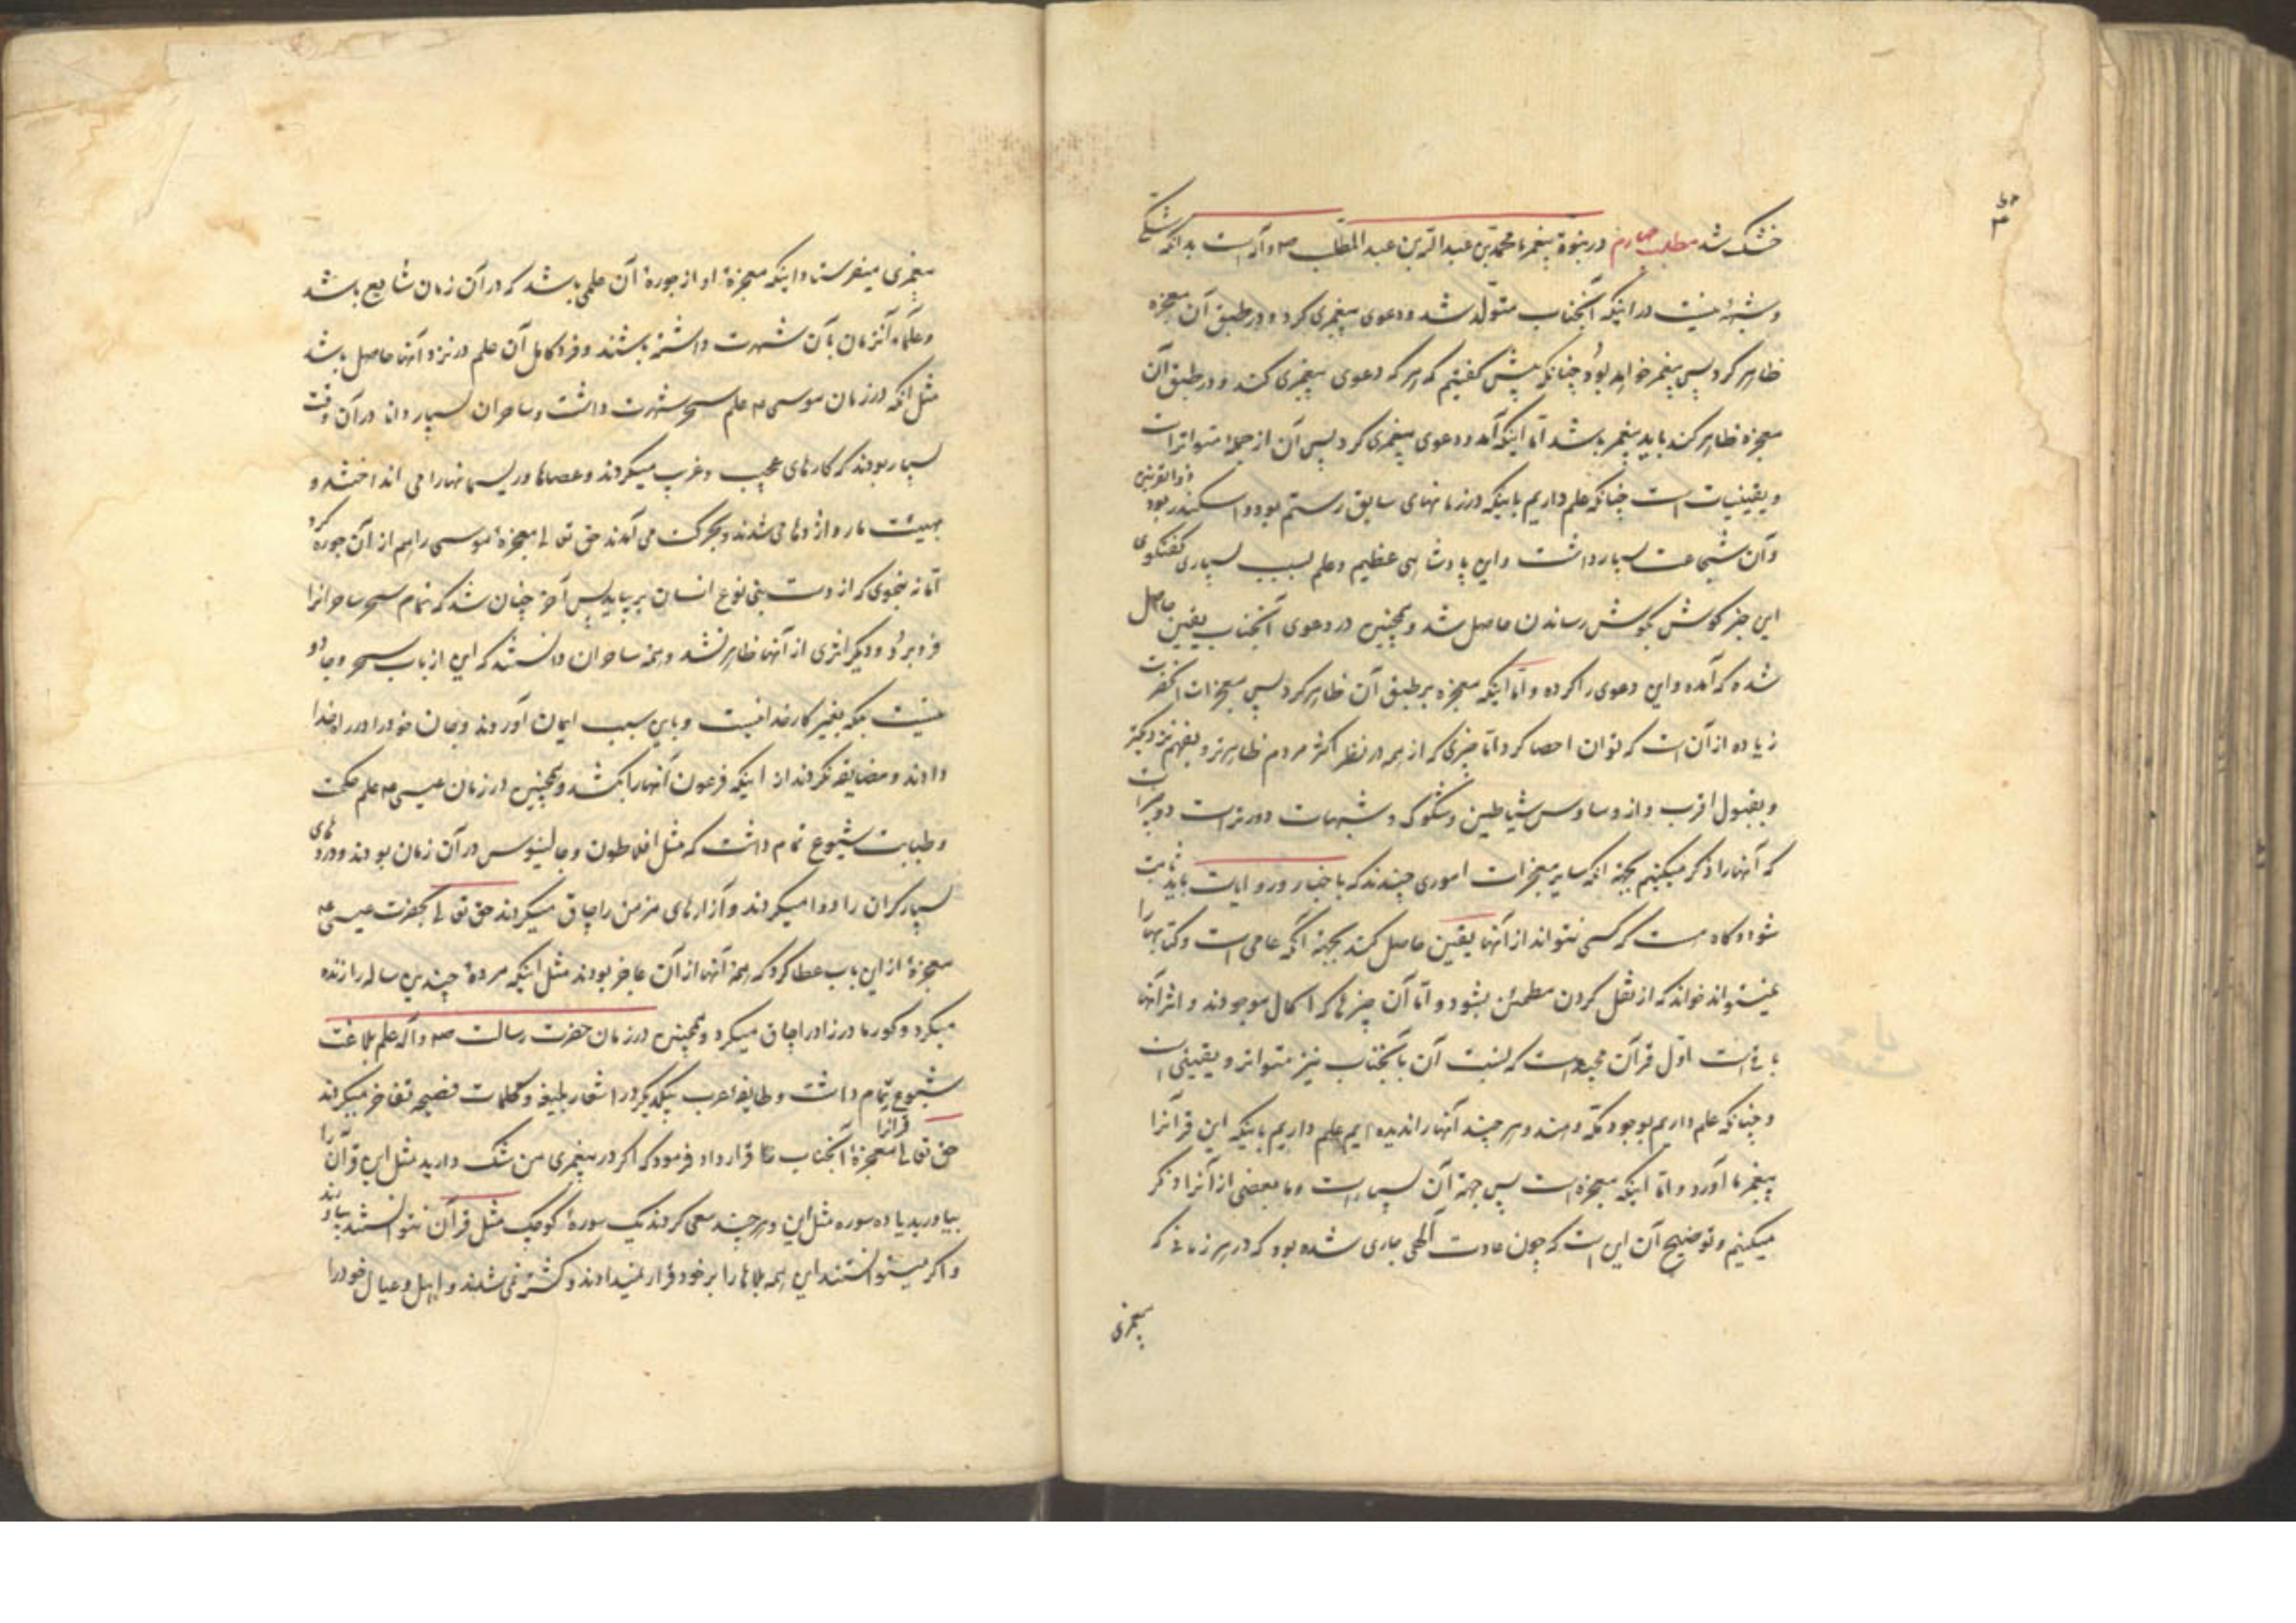 خشک شد مطلب چهارم در نبوة پیغمر ما محمد بن عبد الله بن عبد المطلب ص و آله است بدانکه شکی
و شبهۀ نیست در اینکه آنجناب متولد شد و دعوی پیغمری کرد و در طبق آن معجزه
ظاهر کرد پس پیغمر خواهد بود چنانکه پیش کفتیم که هر که دعوی پیغمری کند و در طبق آن
معجزه ظاهر کند باید پیغمر باشد اما اینکه آمد و دعوی پیغمری کرد پس آن از جمله متواترات
و یقینیات است چنانکه علم داریم باینکه در زمانهای سابق رستم بود و اسکندر ذوالقرنین بود
و آن شجاعت بسیار داشت و این پادشاهی عظیم و علم بسبب بسیاری کفتکوی
این خبر کوش بکوش رساندن حاصل شد و همچنین در دعوی آنجناب یقین حاصل
شده که آمده و این دعوی را کرده و اما اینکه معجزه بر طبق آن ظاهر کرد پس معجزات آنحضرت
زیاده از آن است که توان احصا کرد اما چیزی که از همه در نظر اکثر مردم ظاهرتر و بفهم نزدیکتر
و بقبول اقرب و از وساوس شیاطین و شکوک و شبهات دورتر است دو چیز است
که آنها را ذکر میکنیم بجهة انکه سایر معجزات اموری چندند که باخبار و روایات باید ثابت
شود و کاه هست که کسی نتواند از آنها یقین حاصل کند بجهة آنکه عامی است و کتابها را
نمیتواند خواند که از نقل کردن مطمئن بشود و اما آن چیزها که الحال موجودند و اثر آنها
باقی است اول قرآن مجید است که نسبت آن بآنجناب نیز متواتر و یقینی است
و چنانکه علم داریم بوجود مکه و هند و هر چند آنها را ندیده ایم علم داریم باینکه این قرآنرا
پیغمر ما آورد و اما اینکه معجزه است پس جهة آن بسیار است و ما بعضی از آنرا ذکر
میکنیم و توضیح آن این است که چون عادت الهی جاری شده بود که در هر زمانی که
پیغمری
پیغمری میفرستاد اینکه معجزۀ او از جورۀ آن علمی باشد که در آن زمان شایع باشد
و علمآء آنزمان بآن شهرت داشته باشند و فرد کامل آن علم در نزد آنها حاصل باشد
مثل انکه در زمان موسی ع علم سحر شهرت داشت و ساحران بسیار دانا در آن وقت
بسیار بودند که کارهای عجیب و غریب میکردند و عصاها و ریسمانها را می انداختند و
بهیئت مار و اژدها می شدند و بحرکت می آمدند حق تعالی معجزۀ موسی را هم از آن جوره کرد
اما نه بنحوی که از دست بنی نوع انسان بر بیاید پس آخر چنان شد که تمام سحر ساحرانرا
فرو برد و دیکر اثری از آنها ظاهر نشد و همه ساحران دانستند که این از باب سحر و جادو
نیست بلکه بغیر کار خدا نیست و باین سبب ایمان آوردند و جان خود را در راه خدا
دادند و مضایقه نکردند از اینکه فرعون آنها را بکشد و همچنین در زمان عیسی ع علم حکمت
و طبابت شیوع تمام داشت که مثل افلاطون و جالینوس در آن زمان بودند و دردهای
بسیار کران را دوا میکردند و آزارهای مزمن را چاق میکردند حق تعالی بحضرت عیسی ع
معجزۀ از این باب عطا کرد که همۀ آنها از آن عاجز بودند مثل اینکه مردۀ چندین ساله را زنده
میکرد و کور مادرزاد را چاق میکرد و همچنین در زمان حضرت رسالت ص و آله علم بلاغت
شیوع تمام داشت و طایفۀ عرب بیکدیکر در اشعار بلیغه و کلمات فصیحه تفاخر میکردند
حق تعالی معجزۀ آنجناب قرآنرا قرار داد فرمود که اکر در پیغمری من شک دارید مثل این قرآن را
بیاورید یا ده سوره مثل این و هر چند سعی کردند یک سورۀ کوچک مثل قرآن نتوانستند بیاورند
و اکر میتوانستند این همه بلاها را بر خود قرار نمیدادند و کشته نمی شدند و اهل و عیال خود را